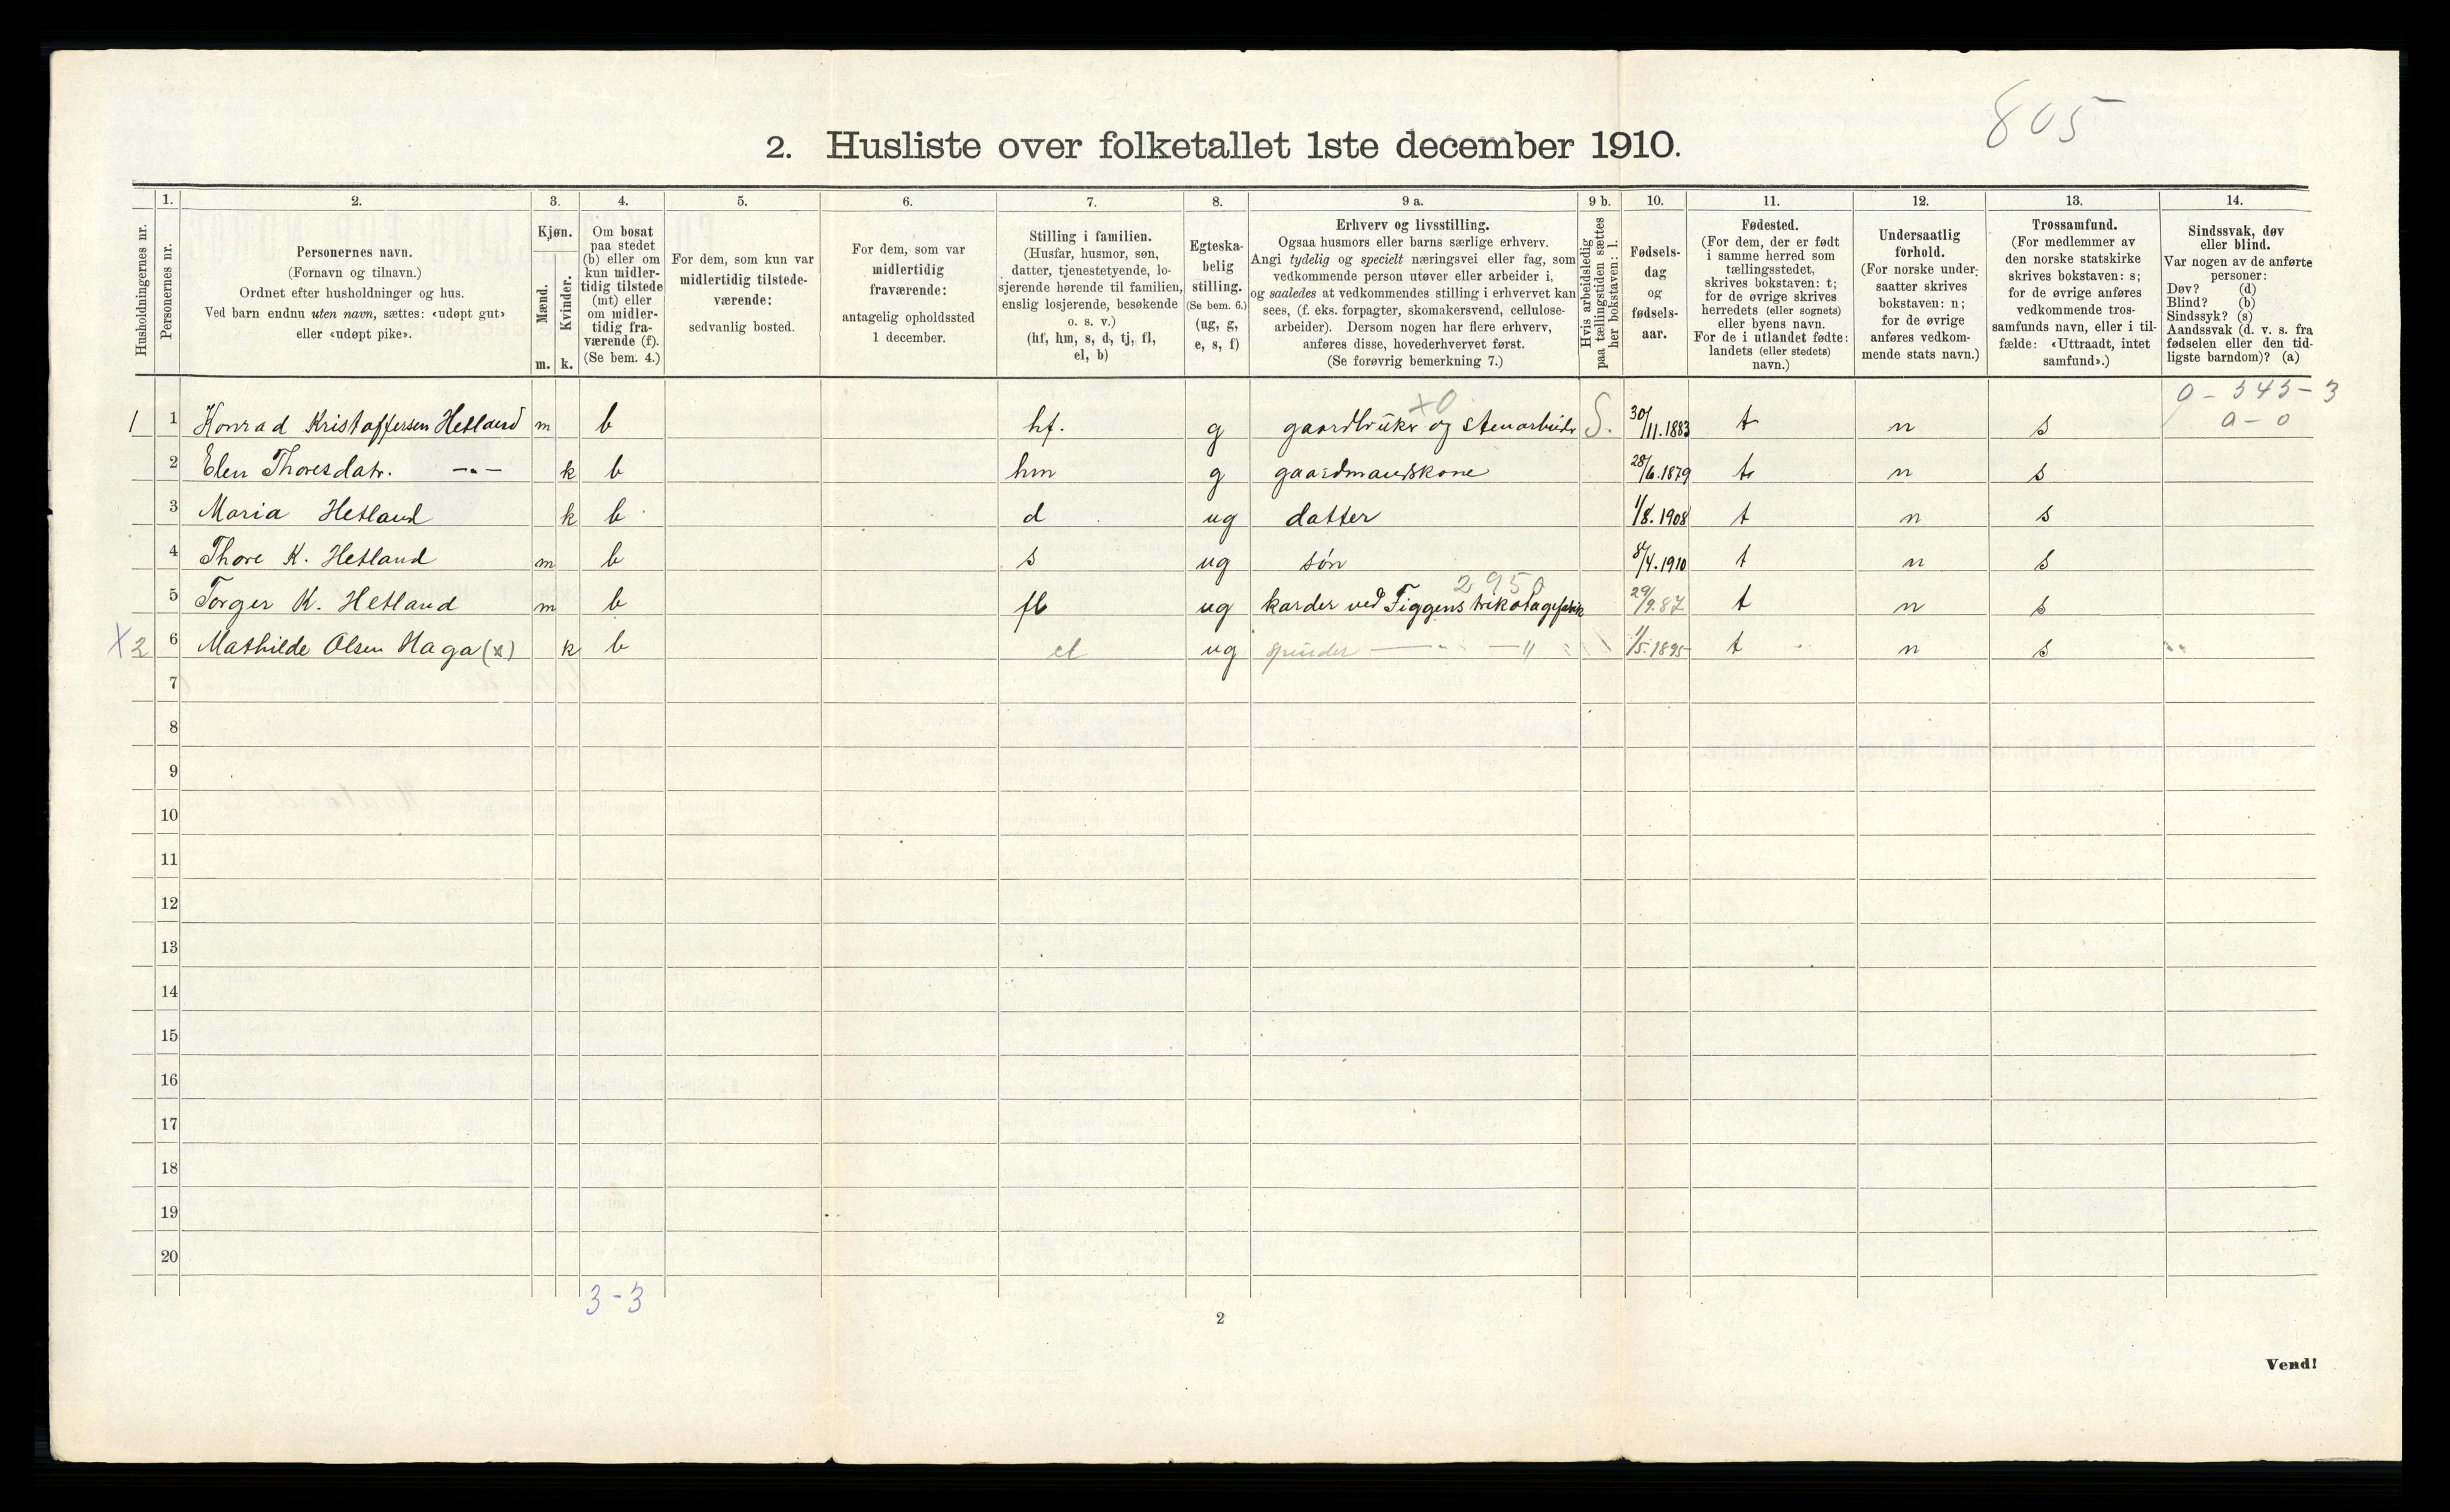 805
2. Husliste over folketallet 1ste december 1910.
Husholdningernes nr.
1. Personernes nr.
2. Personernes navn.
(Fornavn og tilnavn.)
Ordnet efter husholdninger og hus.
Ved barn endnu uten navn, sættes: «udøpt gut»
eller «udøpt pike».
3. Kjøn.
Mænd. m.
Kvinder. k.
4. Om bosat
paa stedet
(b) eller om
kun midler-
tidig tilstede
(mt) eller
om midler-
tidig fra-
værende (f).
(Se bem. 4.)
5. For dem, som kun var
midlertidig tilstede-
værende:
sedvanlig bosted.
6. For dem, som var
midlertidig
fraværende:
antagelig opholdssted
1 december.
7. Stilling i familien.
(Husfar, husmor, søn,
datter, tjenestetyende, lo-
sjerende hørende til familien,
enslig losjerende, besøkende
o. s. v.)
(hf, hm, s, d, tj, fl,
el, b)
8. Egteska-
belig
stilling.
(Se bem. 6.)
(ug, g,
e, s, f)
9 a. Erhverv og livsstilling.
Ogsaa husmors eller barns særlige erhverv.
Angi tydelig og specielt næringsvei eller fag, som
vedkommende person utøver eller arbeider i,
og saaledes at vedkommendes stilling i erhvervet kan
sees, (f. eks. forpagter, skomakersvend, cellulose-
arbeider). Dersom nogen har flere erhverv,
anføres disse, hovederhvervet først.
(Se forøvrig bemerkning 7.)
9 b. Hvis arbeidsledig
paa tællingstiden sættes
her bokstaven: l.
10. Fødsels-
dag
og
fødsels-
aar.
11. Fødested.
(For dem, der er født
i samme herred som
tællingsstedet,
skrives bokstaven: t;
for de øvrige skrives
herredets (eller sognets)
eller byens navn.
For de i utlandet fødte:
landets (eller stedets)
navn.)
12. Undersaatlig
forhold.
(For norske under-
saatter skrives
bokstaven: n;
for de øvrige
anføres vedkom-
mende stats navn.)
13. Trossamfund.
(For medlemmer av
den norske statskirke
skrives bokstaven: s;
for de øvrige anføres
vedkommende tros-
samfunds navn, eller i til-
fælde: «Uttraadt, intet
samfund».)
14. Sindssvak, døv
eller blind.
Var nogen av de anførte
personer:
Døv? (d)
Blind? (b)
Sindssyk? (s)
Aandssvak (d. v. s. fra
fødselen eller den tid-
ligste barndom)? (a)
x0 0 - 343 - 3
1 1 Konrad Kristoffersen Hetland m b hf. g gaardbruker og stenarbeider S. 30/11.1883 t n s 0 - 0
2 Elen Thoresdatr. —"— k b hm g gaardmandskone 28/6.1879 t n s
3 Maria Hetland k b d ug datter 1/8.1908 t n s
4 Thore K. Hetland m b s ug søn 8/4.1910 t n s
2950
5 Torger K. Hetland m b fl ug karder ved Figgens trikotagefabrik 29/9.87 t n s
X2 6 Mathilde Olsen Haga (x) k b el ug spinder —"— —" 1/5.1895 t n s
7
8
9
10
11
12
13
14
15
16
17
18
19
20
3-3
2
Vend!